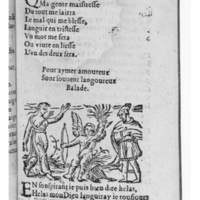 Qu'a gente maistresse
Du tout me laitra
Le mal qui me blesse,
Languir en tristesse
Un mot me fera
Ou viure en liesse
L'vn des deux sera.
Pour aymer amoureux
Sont souuent langoureux
Balade.
EN souspirant ie puis bien dire helas,
Helas mon Dieu languiray ie tousiours